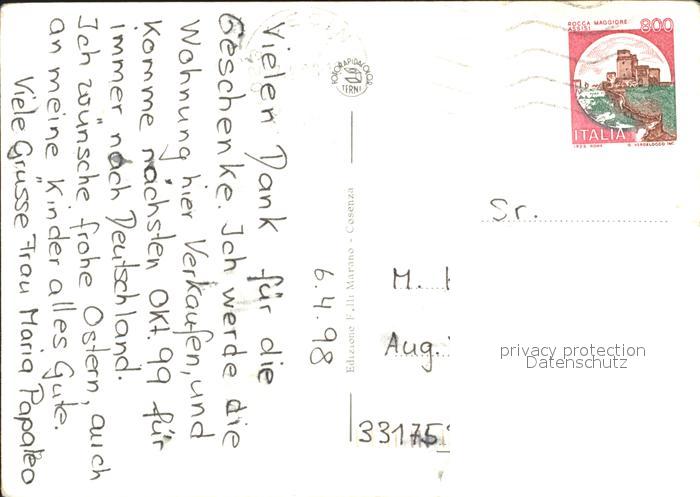 6.4.98
Vielen Dank für die
Geschenke. Ich werde die
Wohnung hier Verkaufen, und
komme nächsten Okt. 99 für
immer nach Deutschland.
Ich wünsche frohe Ostern, auch
an meine Kinder alles Gute.
Viele Grüsse Frau Maria Papaleo
FOTORAPIDACOLOR
TERNI
Edizione F.lli Marano - Cosenza
ROCCA MAGGIORE
ASSISI
800
ITALIA
Sr.
M.
Aug.
33175
privacy protection
Datenschutz